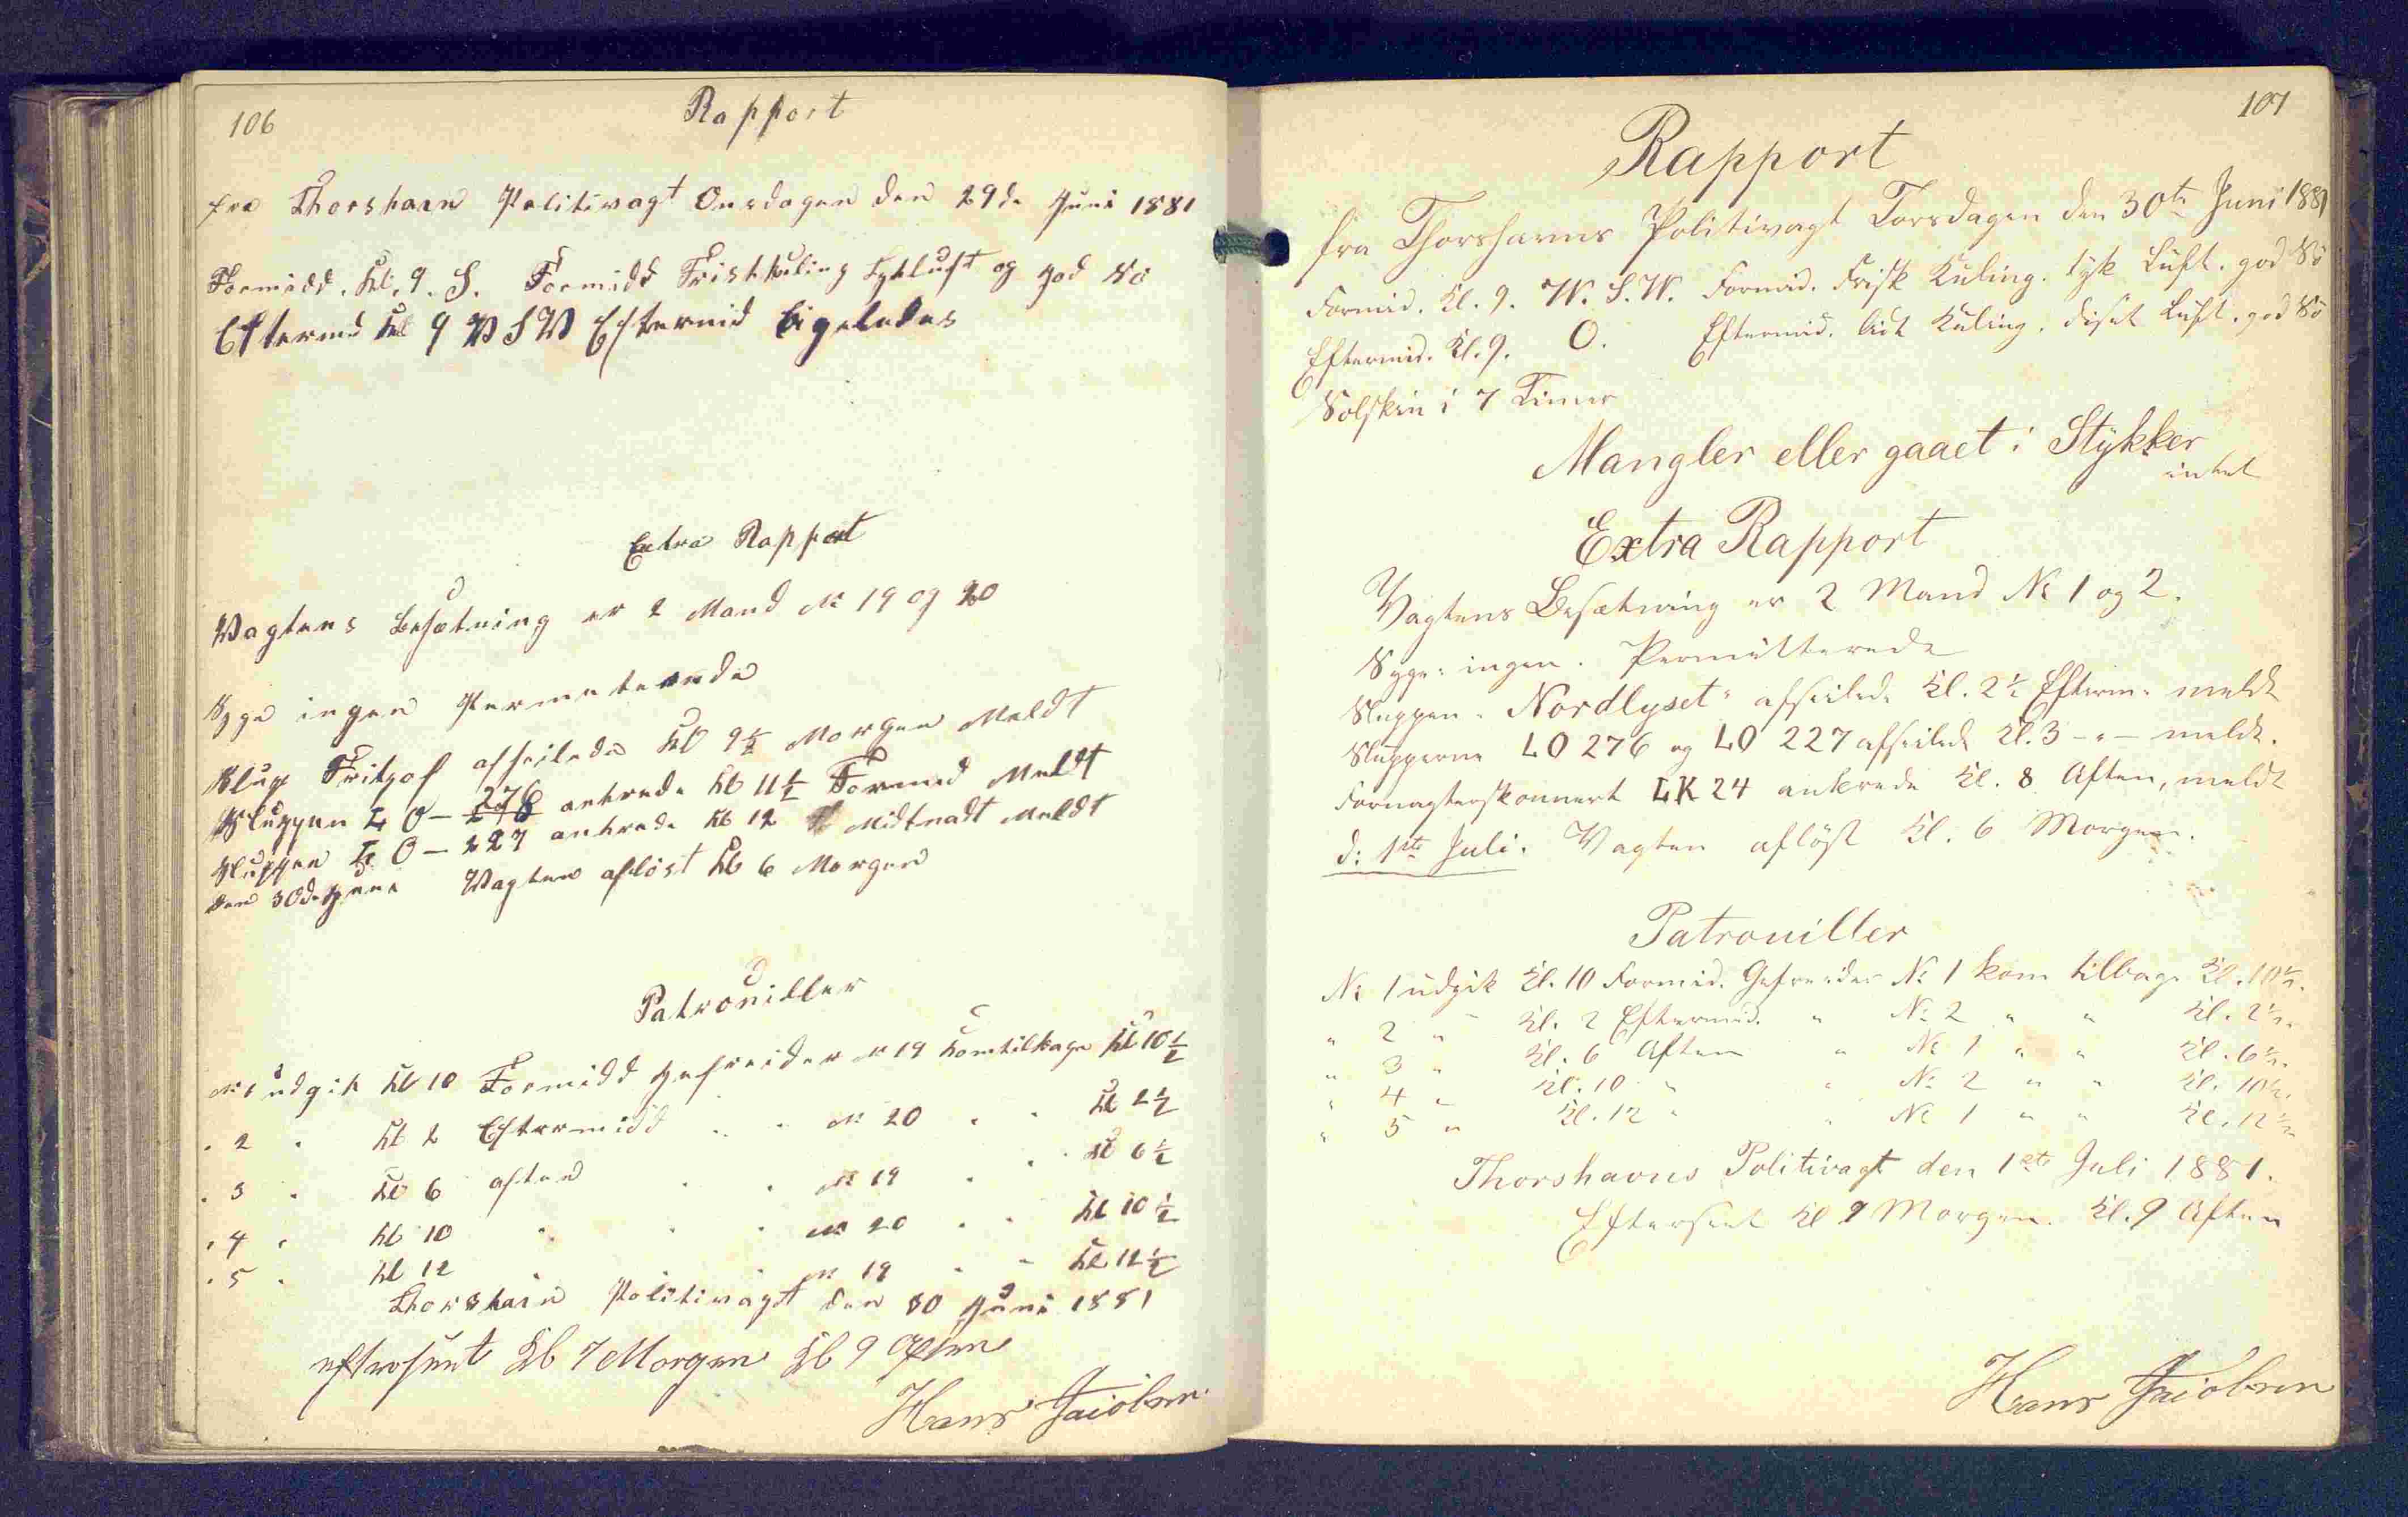 106
Rapport
fra Thorshavn Politivagt Onsdagen den 29de Juni 1881
Formidd. Kl. 9. S. Formidd Friskkuling Tykluft og god Sö
Eftermd Kl 9 V S V Eftermid ligeledes
Extra Rapport
Vagtens Besætning er 2 Mand No 19 og 20
Syge ingen Permeterede
Slup Fritjof afseilede Kl 9½ Morgen Meldt
Sluppen L O – 276 ankrede Kl 11½ Formed Meldt
Sluppen L O – 227 ankrede Kl 12 Midtnadt Meldt
den 30de Juni Vagten aflöst Kl 6 Morgen
Patrouiller
No 1 udgik Kl 10 Formidd Gefreider No 19 komtilbage Kl 10½
" 2 " Kl 2 Eftermidd " " No 20 " " Kl 2½
" 3 " Kl 6 aften " " No 19 " " Kl 6½
" 4 " Kl 10 " " " No 20 " " Kl 10½
" 5 " Kl 12 " " No 19 " " Kl 12½
Thorshavn Politivagt den 30 Juni 1881
efterseet Kl 7 Morgen Kl 9 Aften
Hans Jacobsen
107
Rapport
fra Thorshavns Politivagt Torsdagen den 30te Juni 1881
Formid. Kl. 9. W. S. W. Formid. Frisk Kuling. tyk Luft. god Sö
Eftermid. Kl. 9. O. Eftermid. lidt Kuling. diset Luft. god Sö
Solskin i 7 Timer
Mangler eller gaaet i Stykker
intet
Extra Rapport
Vagtens Besætning er 2 Mand No 1 og 2.
Syge: ingen. Permitterede
Sluppen "Nordlyset" afseilede Kl. 2½ Efterm. meldt
Slupperne LO 276 og LO 227 afseilede Kl. 3 – " – meldt.
Kl. 8 Aften, meldt
d: 1ste Juli. Vagten aflöst Kl. 6 Morgen.
Patrouiller
No 1 udgik Kl. 10 Formid. Gefreider No 1 kom tilbage Kl. 10½.
" 2 " Kl. 2 Eftermid. " No 2 " " Kl. 2½.
" 3 " Kl. 6 Aften " No 1 " " Kl. 6½.
" 4 " Kl. 10 " " No 2 " " Kl. 10½.
" 5 " Kl. 12 " " No 1 " " Kl. 12½
Thorshavns Politivagt den 1ste Juli 1881.
Efterseet Kl 9 Morgen. Kl. 9 Aften
Hans Jacobsen